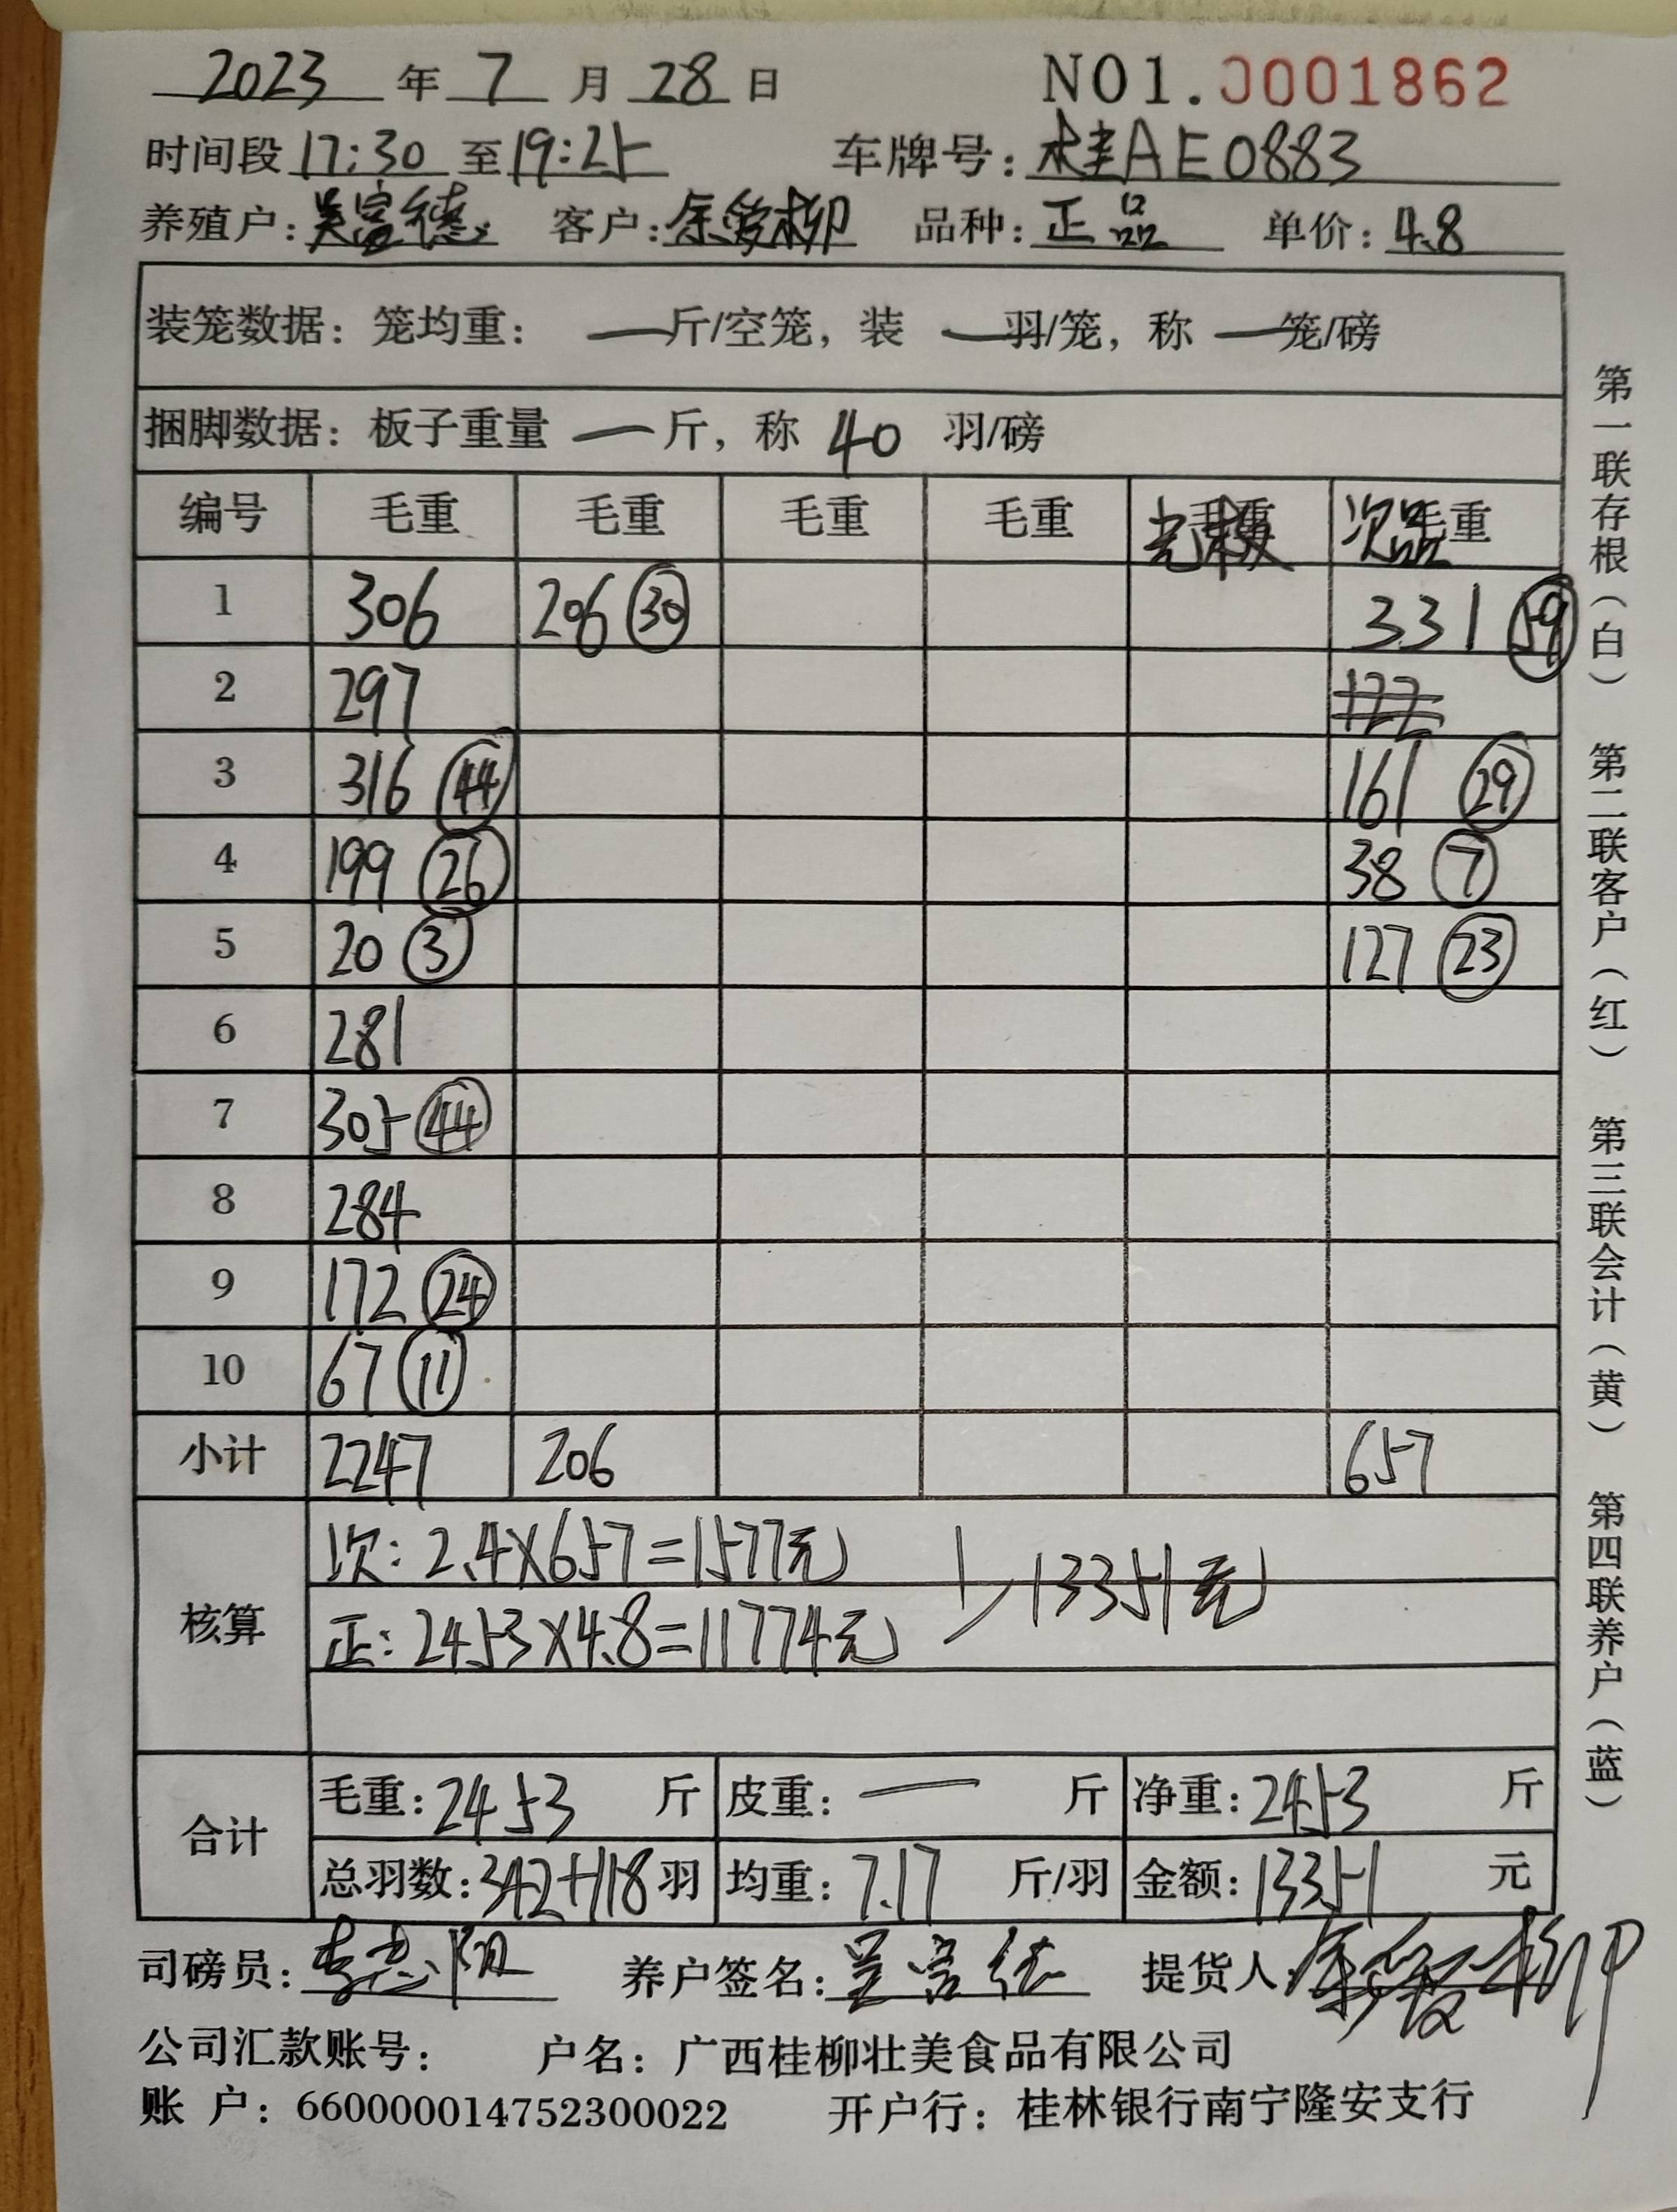 2023 年 7 月 28 日 NO1.0001862
时间段 17:30 至 19:25 车牌号: 桂AE0883
养殖户: 吴富德 客户: 余爱柳 品种: 正品 单价: 4.8
装笼数据: 笼均重: 一 斤/空笼, 装 一 羽/笼, 称 一 笼/磅
捆脚数据: 板子重量 一 斤, 称 40 羽/磅
编号 毛重 毛重 毛重 毛重 光板 次品毛重
1 306 206 (30) 331 (59)
2 297 122
3 316 (44) 161 (29)
4 199 (26) 38 (7)
5 20 (3) 127 (23)
6 281
7 305 (44)
8 284
9 172 (24)
10 67 (11)
小计 2247 206 657
核算
次: 2.4×657=1577元
正: 2453×4.8=11774元
13351元
合计
毛重: 2453 斤 皮重: 一 斤 净重: 2453 斤
总羽数: 342+118 羽 均重: 7.17 斤/羽 金额: 13351 元
司磅员: 养户签名: 吴富德 提货人: 余爱柳
公司汇款账号: 户名: 广西桂柳壮美食品有限公司
账 户: 660000014752300022 开户行: 桂林银行南宁隆安支行
第一联存根(白) 第二联客户(红) 第三联会计(黄) 第四联养户(蓝)